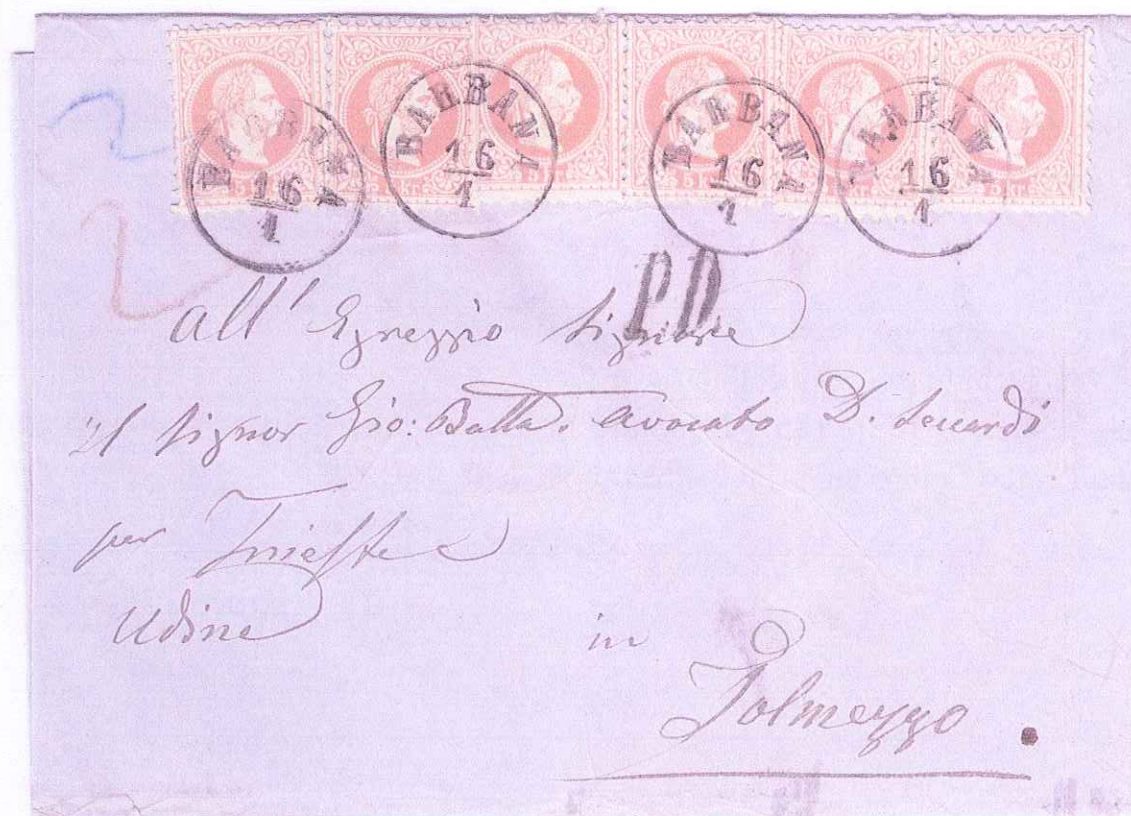 BARBANA 16/1 BARBANA 16/1 BARBANA 16/1 BARBANA 16/1
5 kr 5 kr 5 kr 5 kr
P.D.
All' Egreggio Signore
il Signor Gio: Batta. Avocato D.
per Trieste
Udine in
Tolmezzo.